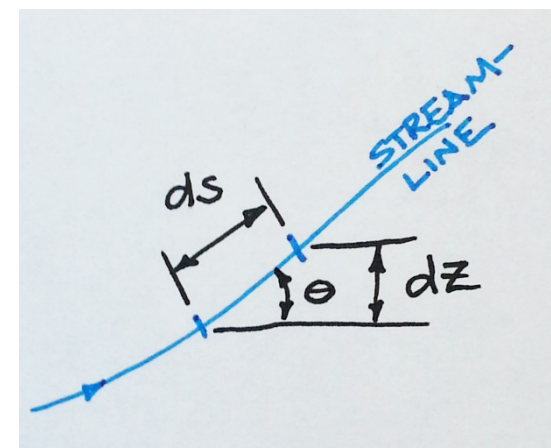 STREAM-
LINE
ds
θ
dz